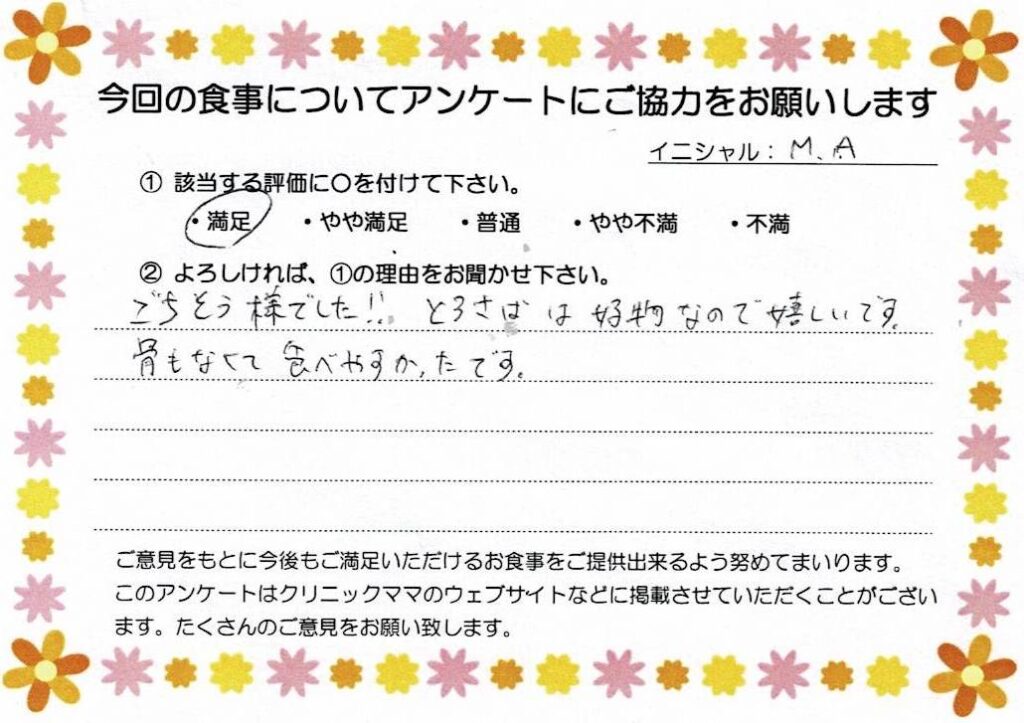 今回の食事についてアンケートにご協力をお願いします
イニシャル：M.A
① 該当する評価に〇を付けて下さい。
・満足 ・やや満足 ・普通 ・やや不満 ・不満
② よろしければ、①の理由をお聞かせ下さい。
ごちそう様でした!! とろさばは好物なので嬉しいです。
骨もなくて食べやすかったです。
ご意見をもとに今後もご満足いただけるお食事をご提供出来るよう努めてまいります。
このアンケートはクリニックママのウェブサイトなどに掲載させていただくことがござい
ます。たくさんのご意見をお願い致します。